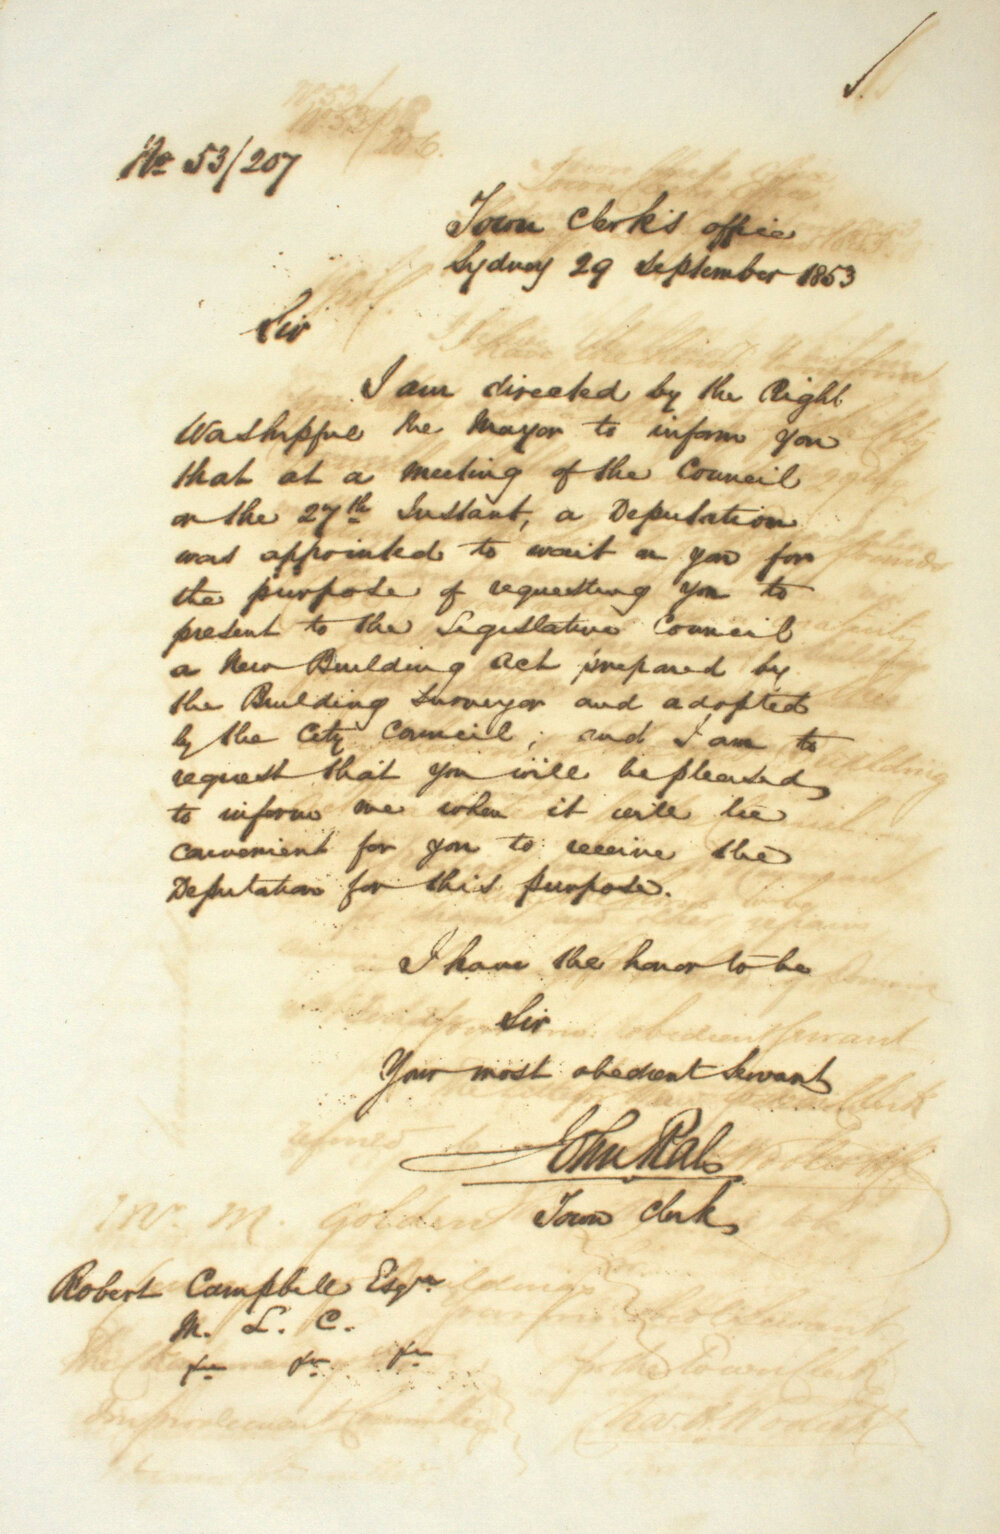 No 53/207
Town Clerk's office
Sydney 29 September 1853
Sir
I am directed by the Right
Worshipful the Mayor to inform you
that at a meeting of the Council
on the 27th Instant, a Deputation
was appointed to wait on you for
the purpose of requesting you to
present to the Legislative Council
a New Building Act prepared by
the Building Surveyor and adopted
by the City Council; and I am to
request that you will be pleased
to inform me when it will be
convenient for you to receive the
Deputation for this purpose.
I have the honor to be
Sir
Your most obedient Servant
John Rae
Town Clerk
Robert Campbell Esqre
M. L. C.